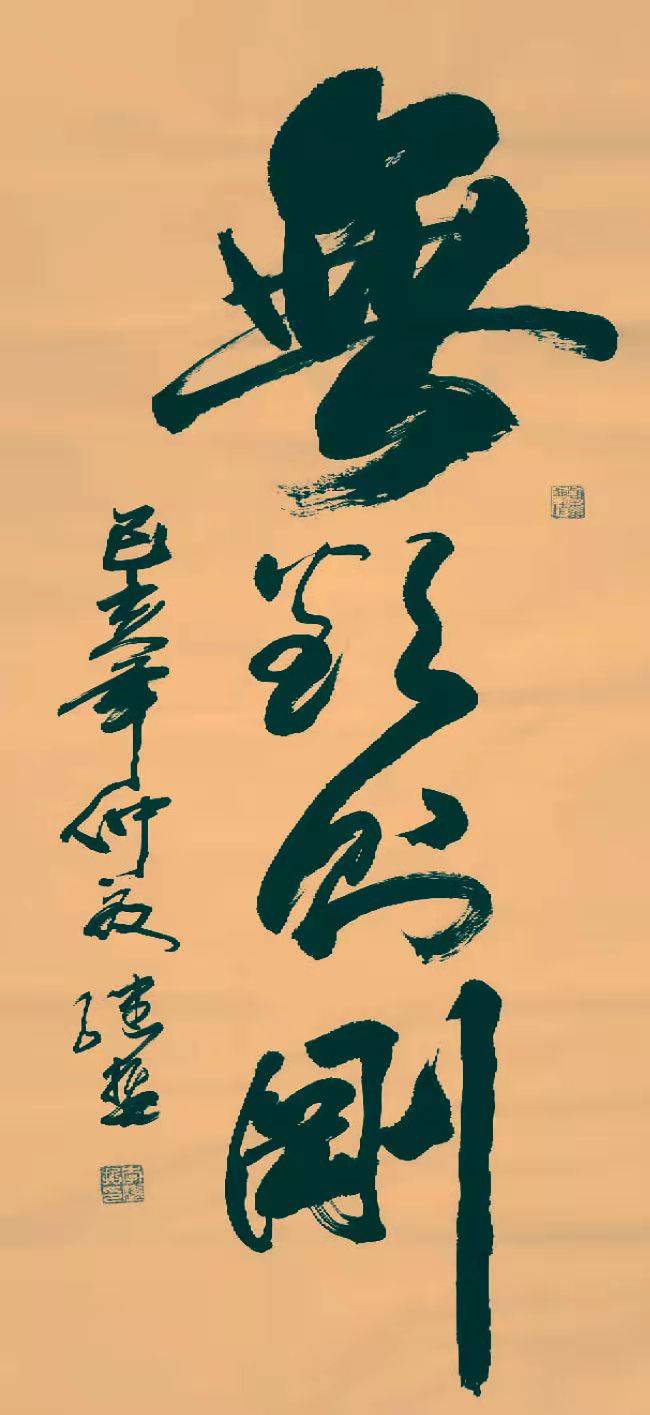 無欲則剛
己亥年仲夏继